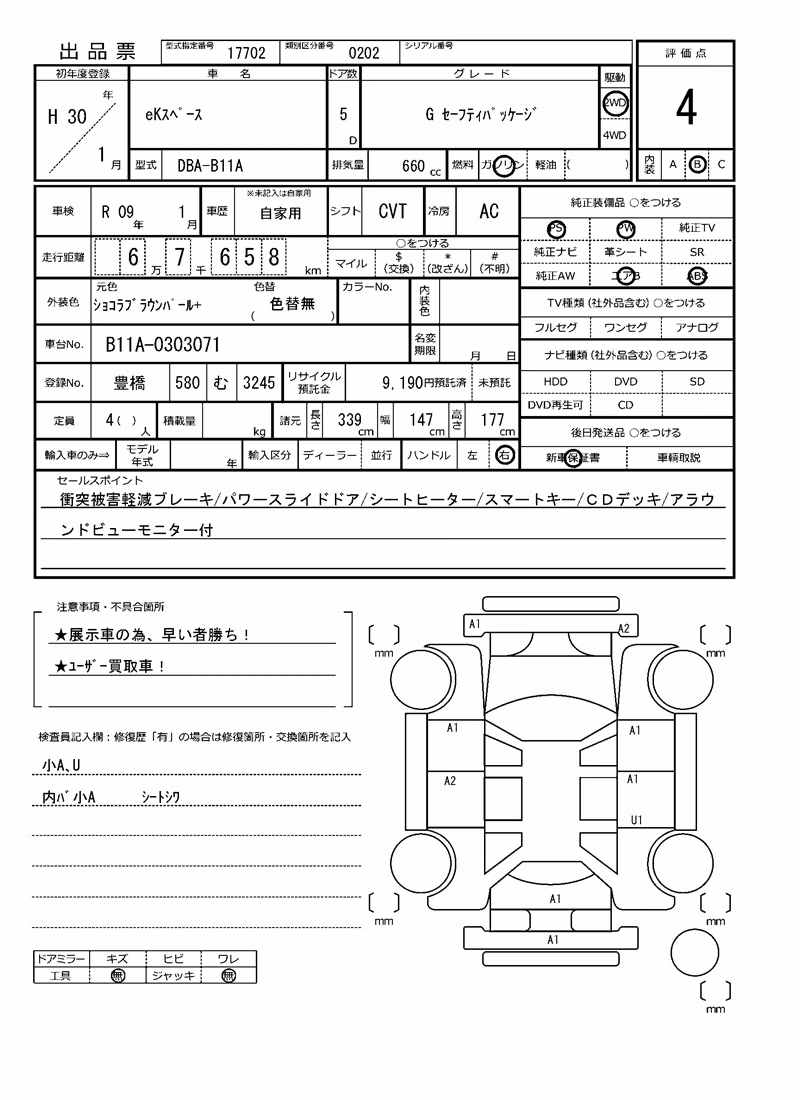 出品票 型式指定番号 17702 類別区分番号 0202 シリアル番号
初年度登録 車名 ドア数 グレード 駆動 評価点
H 30 年 1 月 eKｽﾍﾟｰｽ 5 D G ｾｰﾌﾃｨﾊﾟｯｹｰｼﾞ 2WD 4WD 4
型式 DBA-B11A 排気量 660 cc 燃料 ガソリン 軽油 ( ) 内装 A B C
車検 R 09 年 1 月 車歴 ※未記入は自家用 自家用 シフト CVT 冷房 AC
純正装備品 ○をつける
PS PW 純正TV
走行距離 6 万 7 千 6 5 8 km ○をつける マイル $ (交換) * (改ざん) # (不明)
純正ナビ 革シート SR
純正AW エアB ABS
外装色 元色 ｼｮｺﾗﾌﾞﾗｳﾝﾊﾟｰﾙ+ 色替 ( 色替無 ) カラーNo. 内装色
TV種類 (社外品含む) ○をつける
フルセグ ワンセグ アナログ
車台No. B11A-0303071 名変期限 月 日
ナビ種類 (社外品含む) ○をつける
登録No. 豊橋 580 む 3245 リサイクル預託金 9,190円預託済 未預託
HDD DVD SD
DVD再生可 CD
定員 4 ( ) 人 積載量 kg 諸元 長さ 339 cm 幅 147 cm 高さ 177 cm
後日発送品 ○をつける
輸入車のみ⇒ モデル年式 年 輸入区分 ディーラー 並行 ハンドル 左 右
新車保証書 車輌取説
セールスポイント
衝突被害軽減ブレーキ/パワースライドドア/シートヒーター/スマートキー/ＣＤデッキ/アラウ
ンドビューモニター付
注意事項・不具合箇所
★展示車の為、早い者勝ち！
★ﾕｰｻﾞｰ買取車！
検査員記入欄：修復歴「有」の場合は修復箇所・交換箇所を記入
小A､U
内ﾊﾞ小A ｼｰﾄｼﾜ
ドアミラー キズ ヒビ ワレ
工具 無 ジャッキ 無
A1 A2
mm mm
A1 A1
A2 A1
U1
A1
mm mm
A1
mm